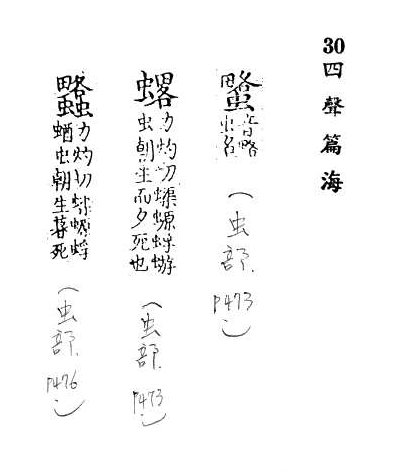 30四聲篇海
音略
虫名
（虫部P473）
力灼切螈蜉蝣
虫朝生而夕死也
（虫部P473）
力灼切螈蜉
蝤虫朝生暮死
（虫部P476）